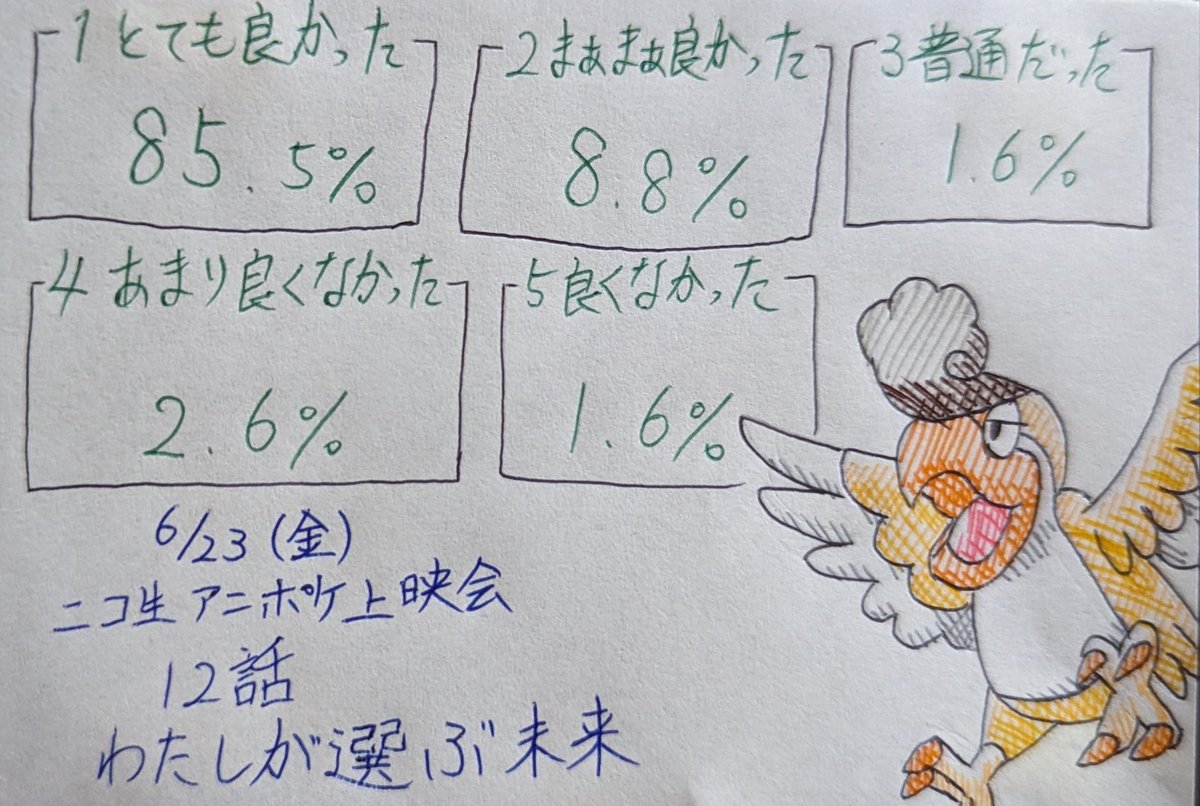 1とても良かった
85.5%
2まぁまぁ良かった
8.8%
3普通だった
1.6%
4あまり良くなかった
2.6%
5良くなかった
1.6%
6/23(金)
ニコ生アニポケ上映会
12話
わたしが選ぶ未来